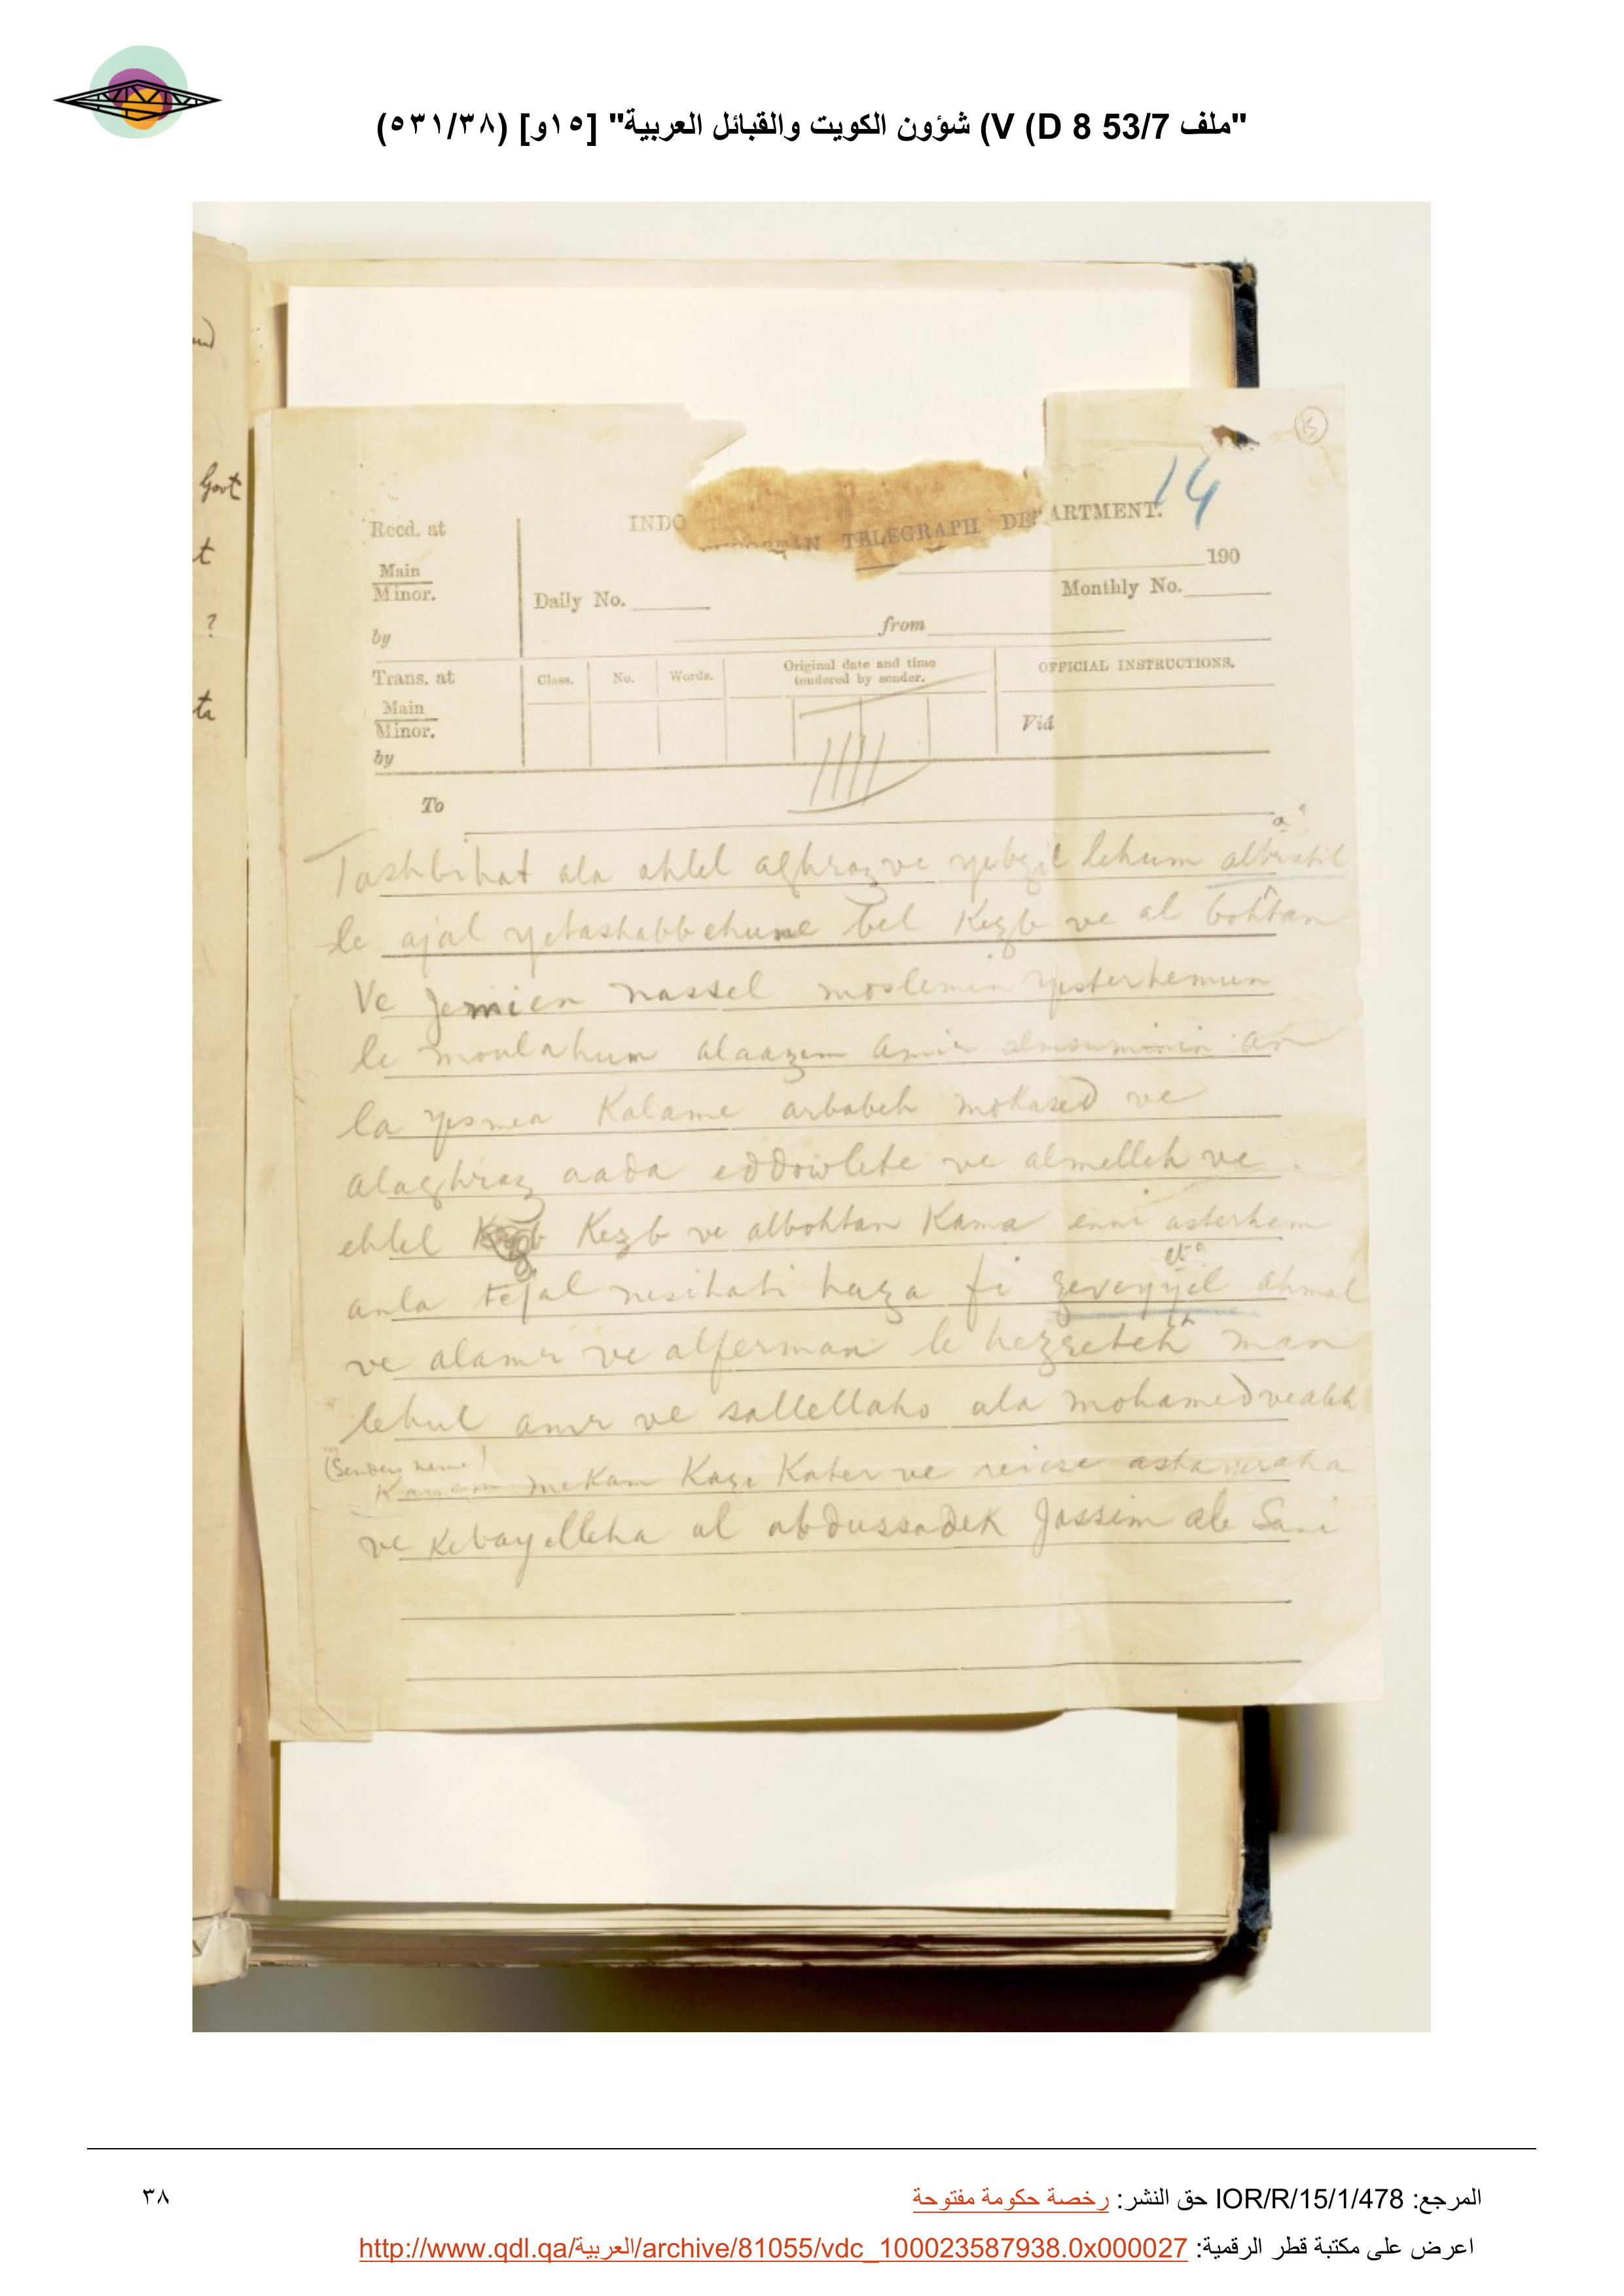 "ملف 53/7 V (D 8) شؤون الكويت والقبائل العربية" [١٥و] (٥٣١/٣٨)
Govt
t
?
ta
15
14
INDO TELEGRAPH DEPARTMENT.
190
Recd. at
Main
Minor.
by
Daily No.
Monthly No.
from
Trans. at
Main
Minor.
by
Class.
No.
Words.
Original date and time
tendered by sender.
OFFICIAL INSTRUCTIONS.
Viâ
To
a ?
Tashbihat ala ahlel aghraz ve lehum albratil
le ajal yetashabbehune bel Kezb ve al bohtan
Ve jemien nassel moslemin yesterhemun
le moulahum alaazem Amir almouminin an
la yesmea Kalame arbabeh mokased ve
alaghraz aada eddowlete ve almelleh ve
ehlel Kezb ve albohtan Kama enni asterhem
anla tejal nesihati haza fi zeveyyel ahmal
ve alamr ve alferman le hezreteh man
lehul amr ve sallellaho ala mohamed vealeh
(Senders name)
mekam Kaza Kater ve reiese
ve Kebayelleha al abdussadek Jassim ale Sani
المرجع: IOR/R/15/1/478 حق النشر: رخصة حكومة مفتوحة
٣٨
اعرض على مكتبة قطر الرقمية: http://www.qdl.qa/العربية/archive/81055/vdc_100023587938.0x000027